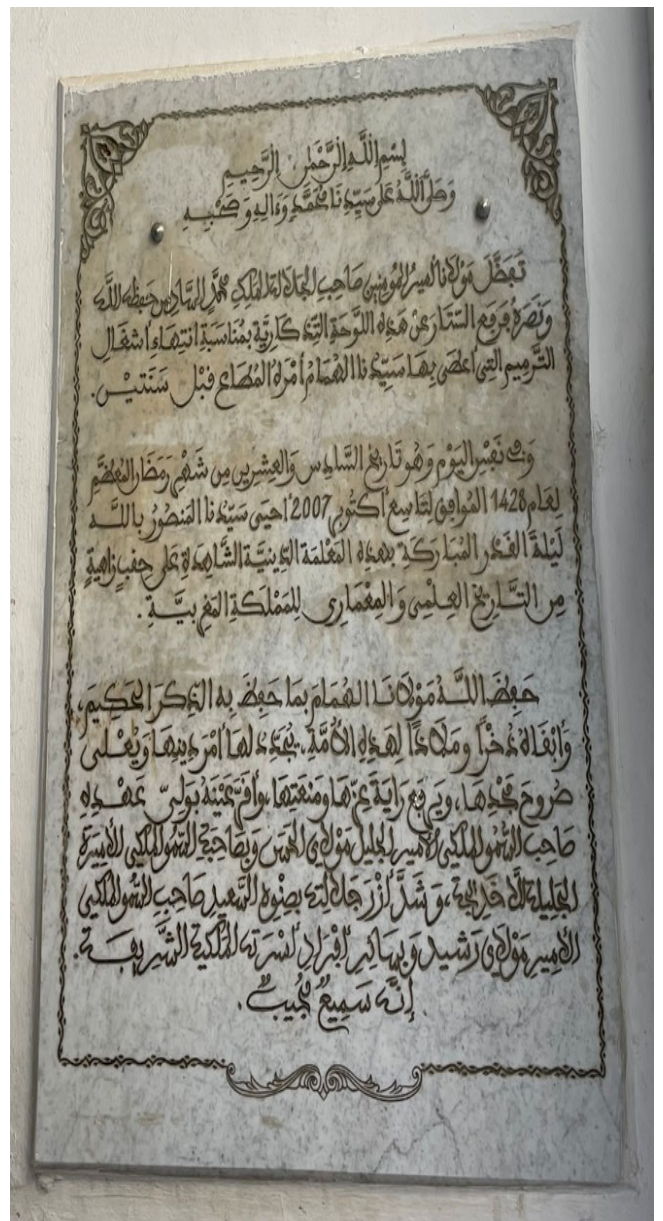 بِسْمِ اللَّهِ الرَّحْمٰنِ الرَّحِيمِ
وَصَلَّى اللَّهُ عَلَى سَيِّدِنَا مُحَمَّدٍ وَءَالِهِ وَصَحْبِهِ
تَفَضَّلَ مَوْلَانَا أَمِيرُ الْمُومِنِينَ صَاحِبُ الْجَلَالَةِ الْمَلِكُ مُحَمَّدٌ السَّادِسُ حَفِظَهُ اللَّهُ
وَنَصَرَهُ فَرَفَعَ السِّتَارَ عَنْ هَذِهِ اللَّوْحَةِ التِّذْكَارِيَّةِ بِمُنَاسَبَةِ انْتِهَاءِ أَشْغَالِ
التَّرْمِيمِ التِي أَعْطَى بِهَا سَيِّدُنَا الْهُمَامُ أَمْرَهُ الْمُطَاعَ قَبْلَ سَنَتَيْنِ.
وَفِي نَفْسِ الْيَوْمِ وَهُوَ تَارِيخُ السَّادِسِ وَالْعِشْرِينَ مِن شَهْرِ رَمَضَانَ الْمُعَظَّمِ
لِعَامِ 1428 الْمُوَافِقُ لِتَاسِعِ أُكْتُوبِر 2007 أَحْيَى سَيِّدُنَا الْمَنْصُورُ بِاللَّهِ
لَيْلَةَ الْقَدْرِ الْمُبَارَكَةِ بِهَذِهِ الْمَعْلَمَةِ الدِّينِيَّةِ الشَّاهِدَةِ عَلَى حِقَبٍ زَاهِيَةٍ
مِنَ التَّارِيخِ الْعِلْمِي وَالْمِعْمَارِي لِلْمَمْلَكَةِ الْمَغْرِبِيَّةِ.
حَفِظَ اللَّهُ مَوْلَانَا الْهُمَامَ بِمَا حَفِظَ بِهِ الذِّكْرَ الْحَكِيمَ،
وَأَبْقَاهُ ذُخْراً وَمَلَاذاً لِهَذِهِ الْأُمَّةِ، يُجَدِّدُ لَهَا أَمْرَ دِينِهَا وَيُعْلِي
صُرُوحَ مَجْدِهَا، وَيَرْفَعُ رَايَةَ عِزِّهَا وَمَنَعَتِهَا، وَأَقَرَّ عَيْنَهُ بِوَلِيِّ عَهْدِهِ
صَاحِبِ السُّمُوِّ الْمَلَكِي الْأَمِيرِ الْجَلِيلِ مَوْلَاي الْحَسَن وَبِصَاحِبَةِ السُّمُوِّ الْمَلَكِي الْأَمِيرَةِ
الْجَلِيلَةِ لَلَّا خَدِيجَة، وَشَدَّ أَزْرَ جَلَالَتِهِ بِصِنْوِهِ السَّعِيدِ صَاحِبِ السُّمُوِّ الْمَلَكِي
الْأَمِيرِ مَوْلَاي رَشِيد وَبِسَائِرِ أَفْرَادِ أُسْرَتِهِ الْمَلَكِيَّةِ الشَّرِيفَةِ.
إِنَّهُ سَمِيعٌ مُجِيبٌ.